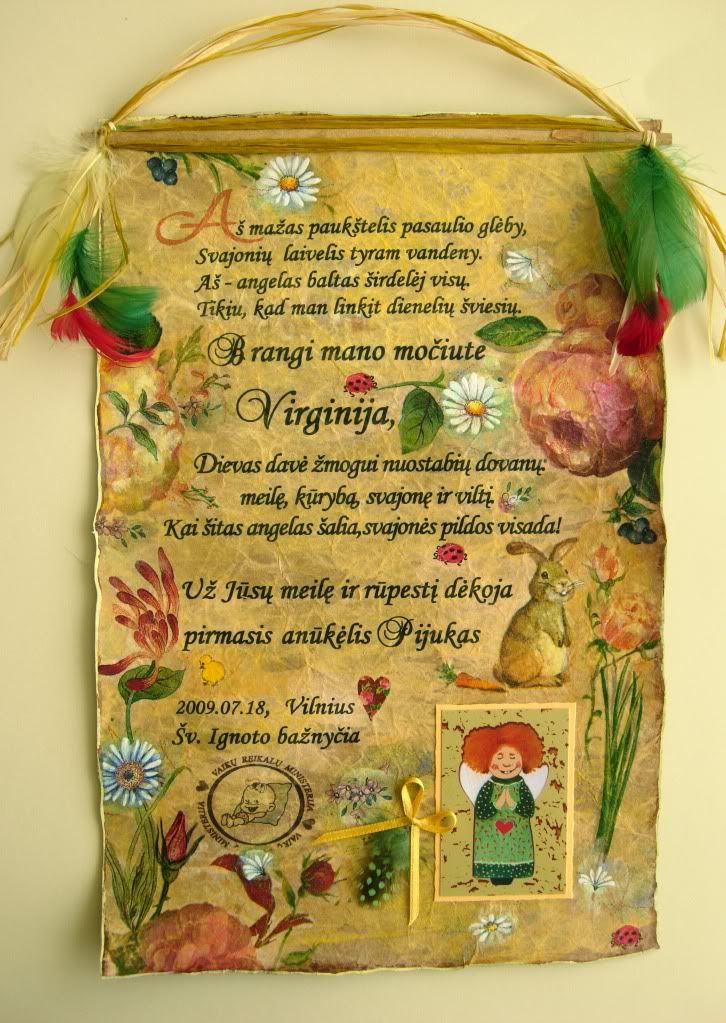 Aš mažas paukštelis pasaulio glėby,
Svajonių laivelis tyram vandeny.
Aš - angelas baltas širdelėj visų.
Tikiu, kad man linkit dienelių šviesių.
Brangi mano močiute
Virginija,
Dievas davė žmogui nuostabių dovanų:
meilę, kūrybą, svajonę ir viltį.
Kai šitas angelas šalia,svajonės pildos visada!
Už Jūsų meilę ir rūpestį dėkoja
pirmasis anūkėlis Pijukas
2009.07.18, Vilnius
Šv. Ignoto bažnyčia
VAIKŲ REIKALŲ MINISTERIJA